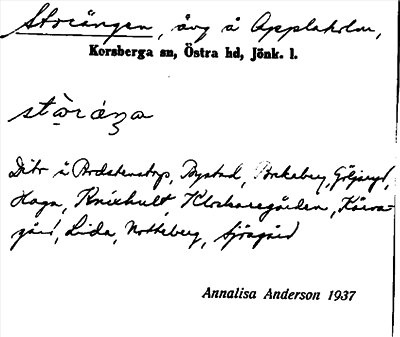 Storängen, äng å Applaholm,
Korsberga sn, Östra hd, Jönk. l.
Ditr i Brdstenstorp, Bystad, Bockaberg, Göljeryd,
Haga, Knixhult, Klockaregården, Kåra-
gärd, Lida, Notteberg, Sjögård
Annalisa Anderson 1937